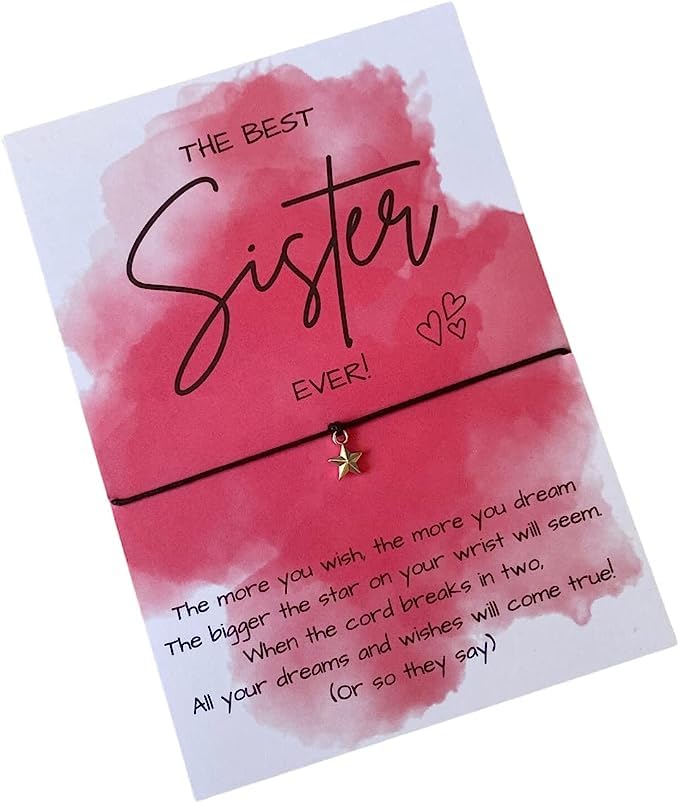 THE BEST
Sister
EVER!
The more you wish, the more you dream
The bigger the star on your wrist will seem.
When the cord breaks in two,
All your dreams and wishes will come true!
(or so they say)